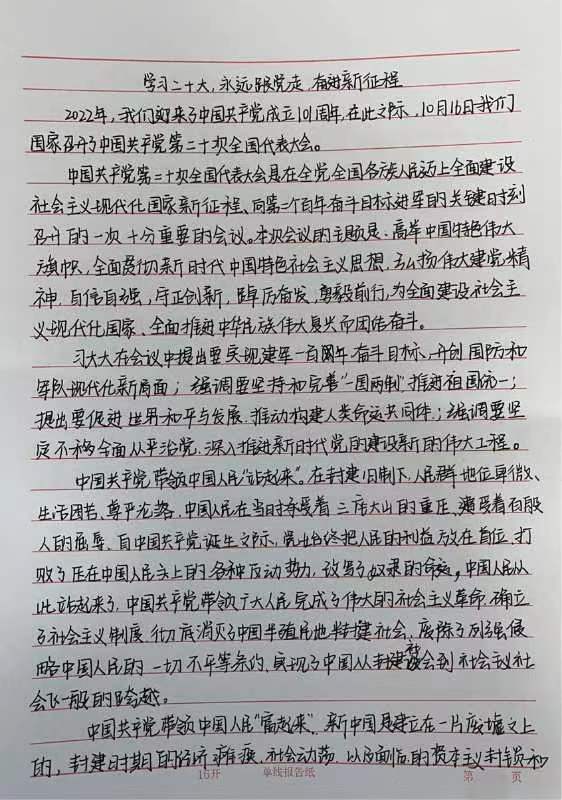 学习二十大,永远跟党走,奋进新征程
2022年,我们迎来了中国共产党成立101周年,在此之际,10月16日我们
国家召开了中国共产党第二十次全国代表大会。
中国共产党第二十次全国代表大会是在全党全国各族人民迈上全面建设
社会主义现代化国家新征程、向第二个百年奋斗目标进军的关键时刻
召开的一次十分重要的会议。本次会议的主题是:高举中国特色伟大
旗帜,全面贯彻新时代中国特色社会主义思想,弘扬伟大建党精
神,自信自强,守正创新,踔厉奋发,勇毅前行,为全面建设社会主
义现代化国家、全面推进中华民族伟大复兴而团结奋斗。
习大大在会议中提出要实现建军一百周年奋斗目标,开创国防和
军队现代化新局面;强调要坚持和完善“一国两制”推进祖国统一;
提出要促进世界和平与发展,推动构建人类命运共同体;强调要坚
定不移全面从严治党,深入推进新时代党的建设新的伟大工程。
中国共产党带领中国人民“站起来”。在封建旧制下,人民群地位卑微、
生活困苦、尊严沦落,中国人民在当时承受着三座大山的重压、遭受着百般
人的屈辱、自中国共产党诞生之际,党出始终把人民的利益放在首位,打
败了压在中国人民头上的各种反动势力,改写了奴隶的命运,中国人民从
此站起来了,中国共产党带领广大人民完成了伟大的社会主义革命,确立
了社会主义制度,彻底消灭了中国半殖民地半封建社会、废除了列强侵
略中国人民的一切不平等条约、实现了中国从封建社会到社会主义社
会飞一般的跨越。
中国共产党带领中国人民“富起来”,新中国是建立在一片废墟之上
的,封建时期的经济瘫痪,社会动荡,以及面临的资本主义封锁和
16开 单线报告纸 第 页